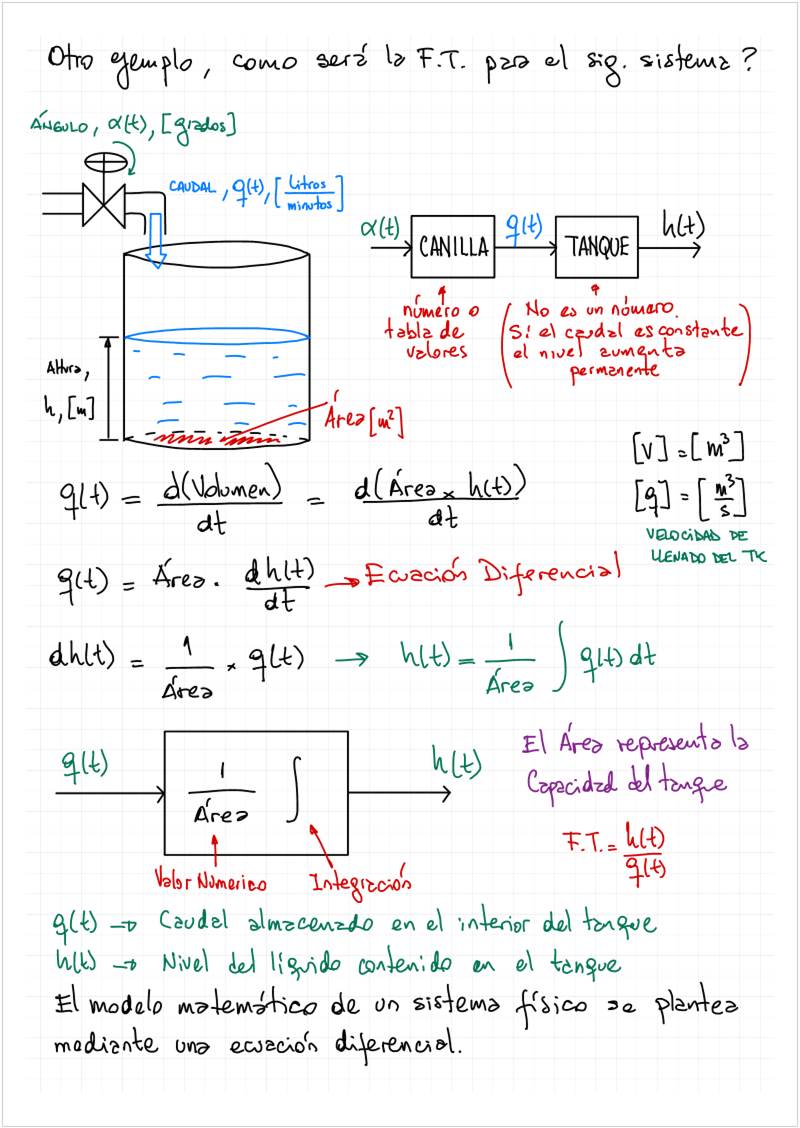 Otro ejemplo, como será la F.T. para el sig. sistema?
ÁNGULO, α(t), [grados]
CAUDAL, q(t), [litros/minutos]
α(t) → CANILLA → q(t) → TANQUE → h(t)
número o
tabla de
valores
(No es un número.
Si el caudal es constante
el nivel aumenta
permanente)
Altura,
h, [m]
Área [m²]
[V] = [m³]
q(t) = d(Volumen)/dt = d(Área × h(t))/dt
[q] = [m³/s]
VELOCIDAD DE
LLENADO DEL TK
q(t) = Área . dh(t)/dt → Ecuación Diferencial
dh(t) = 1/Área × q(t) → h(t) = 1/Área ∫ q(t) dt
q(t) → 1/Área ∫ → h(t)
Valor Númerico
Integración
El Área representa la
Capacidad del tanque
F.T. = h(t)/q(t)
q(t) → Caudal almacenado en el interior del tanque
h(t) → Nivel del líquido contenido en el tanque
El modelo matemático de un sistema físico se plantea
mediante una ecuación diferencial.